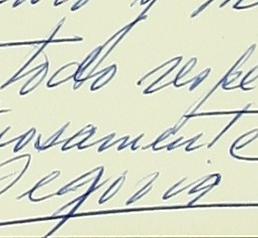 y
todo respe
uosamente
Segovia